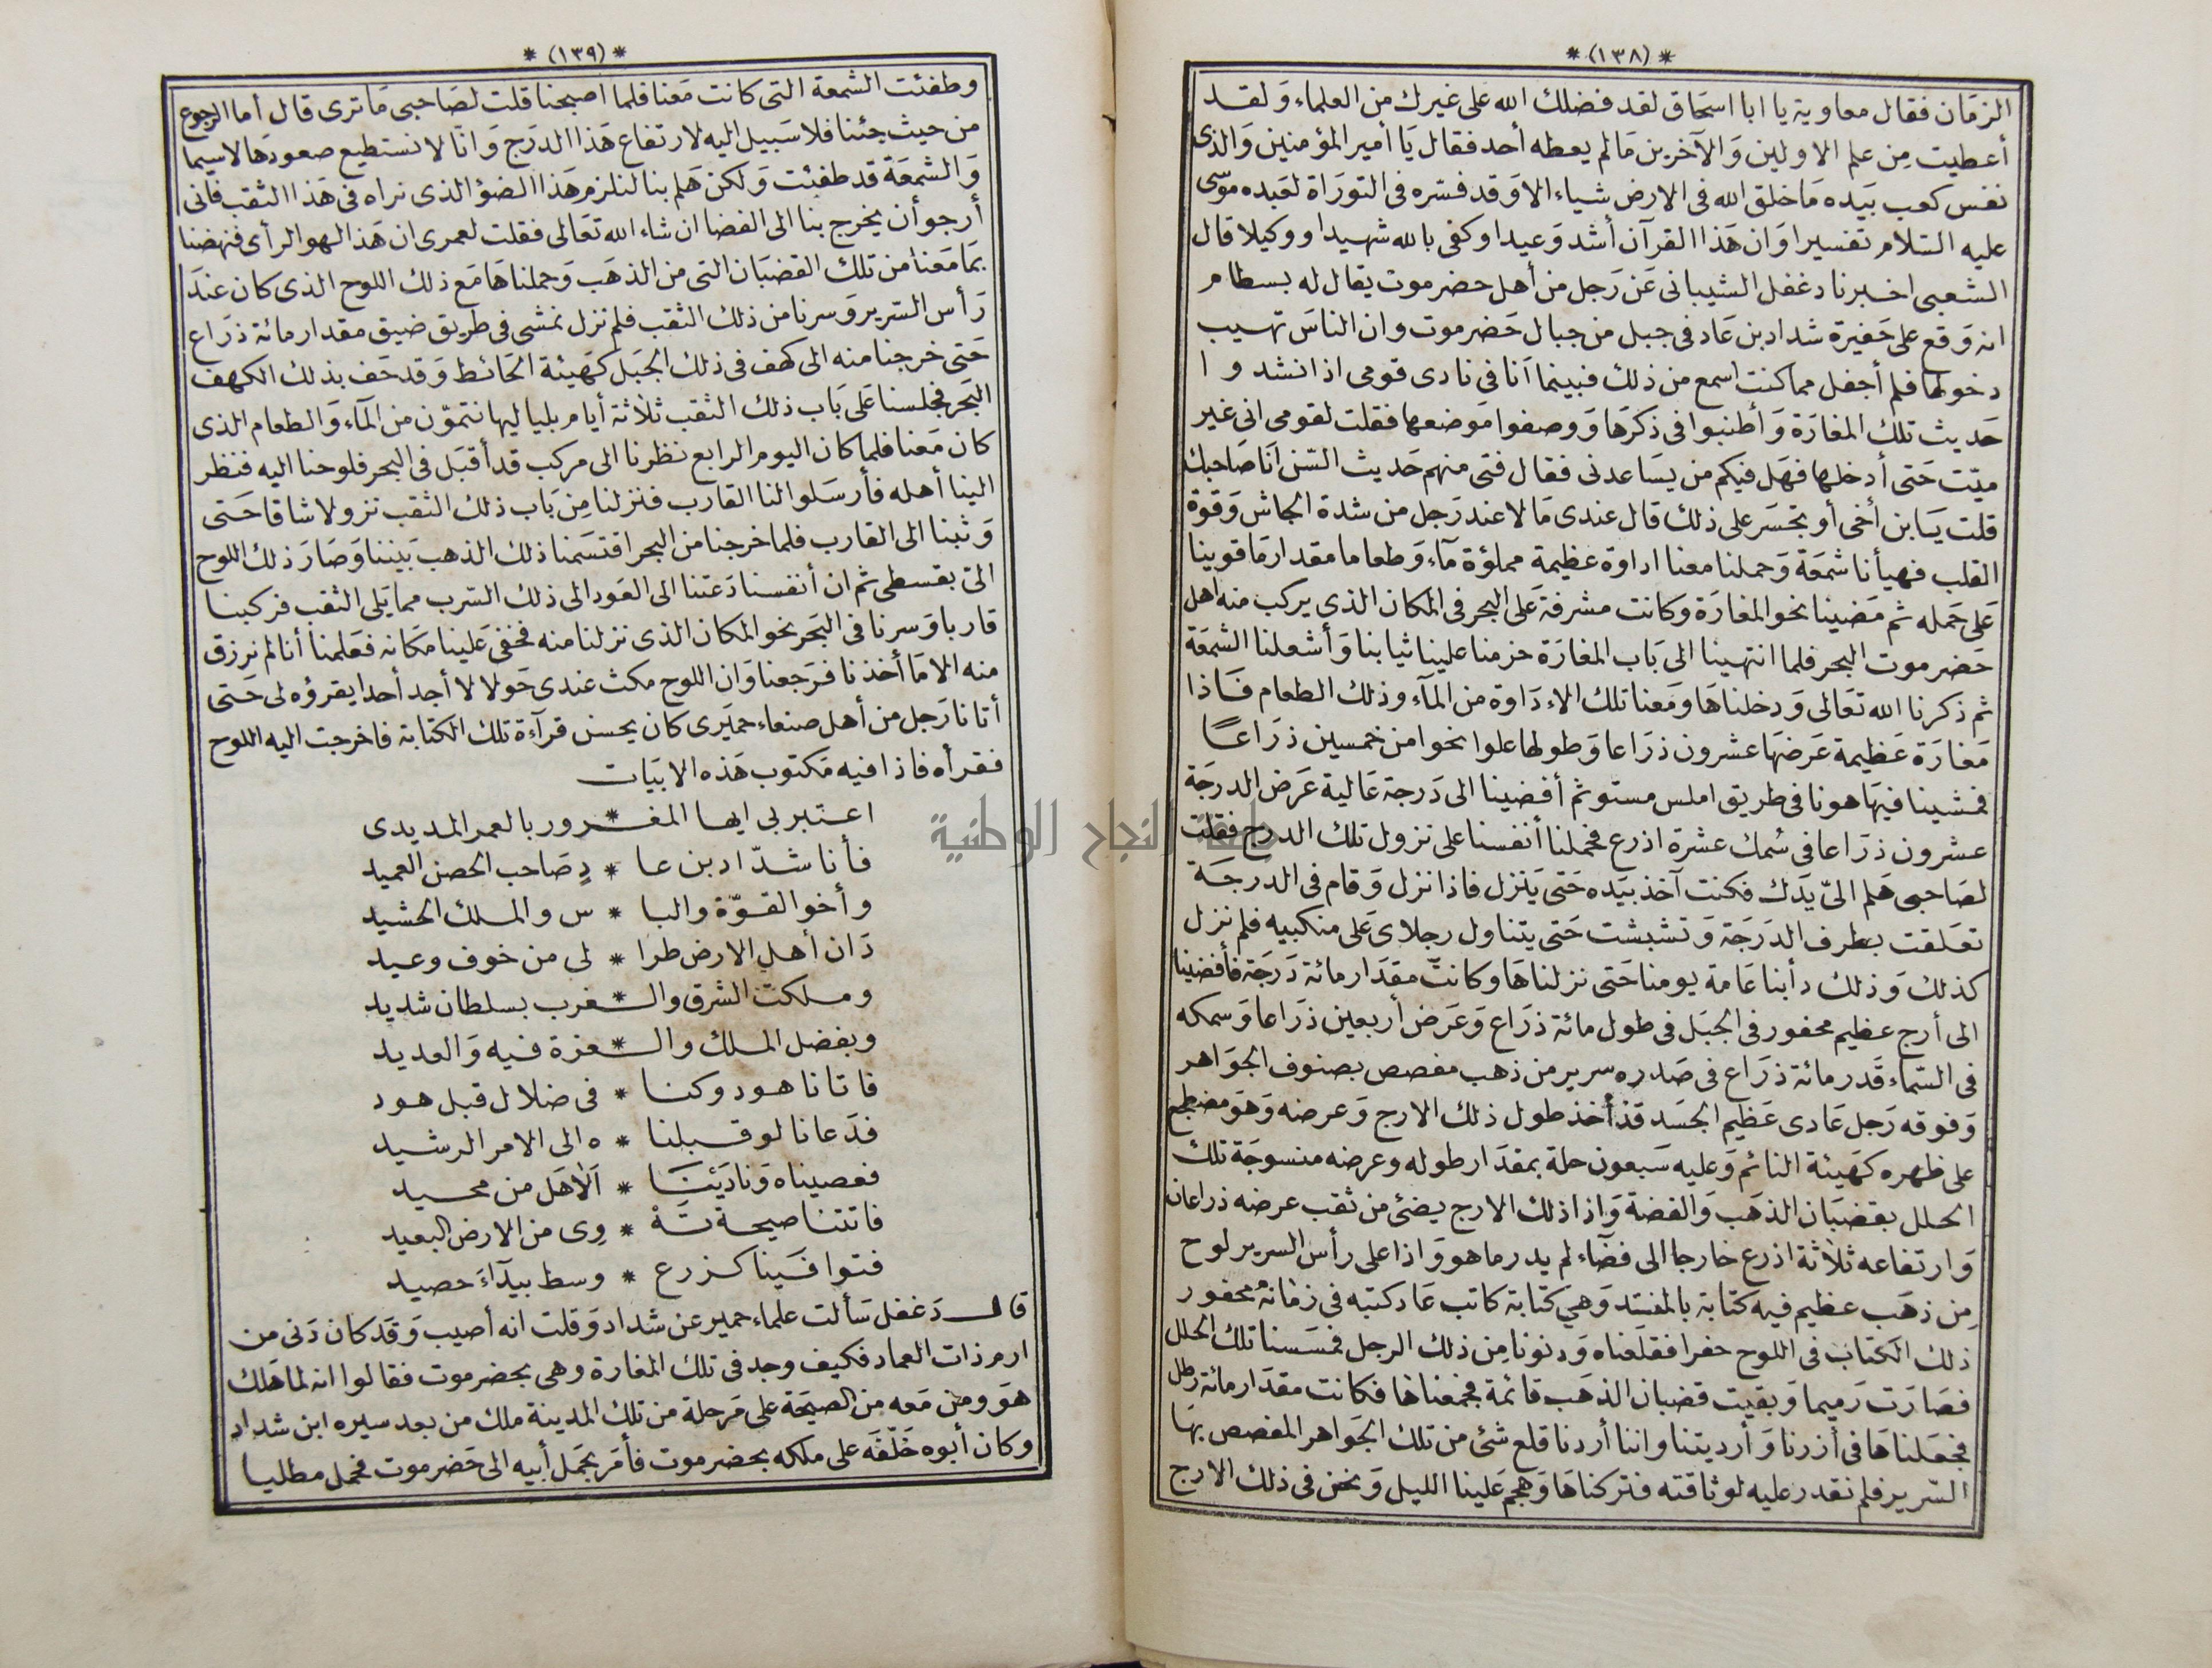 * (١٣٨) *
الزمان فقال معاوية يا ابا اسحاق لقد فضلك الله على غيرك من العلماء ولقد
أعطيت من علم الاولين والآخرين مالم يعطه أحد فقال يا أمير المؤمنين والذى
نفس كعب بيده ما خلق الله فى الارض شياء الا وقد فسره فى التوراة لعبده موسى
عليه السلام تفسيرا وان هذا القرآن أشد وعيدا وكفى بالله شهيدا ووكيلا قال
الشعبى اخبرنا دغفل الشيبانى عن رجل من أهل حضرموت يقال له بسطام
انه وقع على حفيرة شداد بن عاد فى جبل من جبال حضرموت وان الناس تهيب
دخولها فلم أجفل مما كنت اسمع من ذلك فبينما أنا فى نادى قومى اذ انشدوا
حديث تلك المغارة وأطنبوا فى ذكرها ووصفوا موضعها فقلت لقومى انى غير
ميت حتى أدخلها فهل فيكم من يساعدنى فقال فتى منهم حديث السن انا صاحبك
قلت يا بن أخى أو تجسر على ذلك قال عندى ما لا عند رجل من شدة الجاش وقوة
القلب فهيأنا شمعة وحملنا معنا اداوة عظيمة مملؤة مآء وطعاما مقدار ما قوينا
على حمله ثم مضينا نحو المغارة وكانت مشرفة على البحر فى المكان الذى يركب منه اهل
حضرموت البحر فلما انتهينا الى باب المغارة حزمنا علينا ثيابنا وأشعلنا الشمعة
ثم ذكرنا الله تعالى ودخلناها ومعنا تلك الاداوة من المآء وذلك الطعام فاذا
مغارة عظيمة عرضها عشرون ذراعا وطولها علوا نحوا من خمسين ذراعا
فمشينا فيها هونا فى طريق املس مستو ثم أفضينا الى درجة عالية عرض الدرجة
عشرون ذراعا فى سمك عشرة اذرع فحملنا أنفسنا على نزول تلك الدرج فقلت
لصاحبى هلم الىّ يدك فكنت آخذ بيده حتى ينزل فاذا نزل وقام فى الدرجة
تعلقت بطرف الدرجة وتشبشت حتى يتناول رجلاى على منكبيه فلم نزل
كذلك وذلك دأبنا عامة يومنا حتى نزلناها وكانت مقدار مائة درجة فأفضينا
الى أرج عظيم محفور فى الجبل فى طول مائة ذراع وعرض أربعين ذراعا وسمكه
فى السماء قدر مائة ذراع فى صدره سرير من ذهب مفصص بصنوف الجواهر
وفوقه رجل عادى عظيم الجسد قد أخذ طول ذلك الارج وعرضه وهو مضطجع
على ظهره كهيئة النائم وعليه سبعون حلة بمقدار طوله وعرضه منسوجة تلك
الحلل بقضبان الذهب والفضة واذا ذلك الارج يضئ من ثقب عرضه ذراعان
وارتفاعه ثلاثة اذرع خارجا الى فضآء لم يدر ما هو واذا على رأس السرير لوح
من ذهب عظيم فيه كتابة بالمفتد وهى كتابة كاتب عاد كتبه فى زمانه محفور
ذلك الكتاب فى اللوح حفرا فقلعناه ودنونا من ذلك الرجل فمسسنا تلك الحلل
فصارت رميما وبقيت قضبان الذهب قائمة فجمعناها فكانت مقدار مائة رطل
فجعلناها فى أزرنا وأرديتنا واننا أردنا قلع شئ من تلك الجواهر المفصص بها
السرير فلم نقدر عليه لوثاقته فتركناها وهجم علينا الليل ونحن فى ذلك الارج
* (١٣٩) *
وطفئت الشمعة التى كانت معنا فلما اصبحنا قلت لصاحبى ما ترى قال أما الرجوع
من حيث جئنا فلا سبيل اليه لارتفاع هذا الدرج وانا لا نستطيع صعودها لاسيما
والشمعة قد طفئت ولكن هلم بنا لنلزم هذا الضؤ الذى نراه فى هذا الثقب فانى
أرجو أن يخرج بنا الى الفضا ان شاء الله تعالى فقلت لعمرى ان هذا لهو الرأى فنهضنا
بما معنا من تلك القضبان التى من الذهب وحملناها مع ذلك اللوح الذى كان عند
رأس السرير وسرنا من ذلك الثقب فلم نزل نمشى فى طريق ضيق مقدار مائة ذراع
حتى خرجنا منه الى كهف فى ذلك الجبل كهيئة الحائط وقد حف بذلك الكهف
البحر فجلسنا على باب ذلك الثقب ثلاثة أيام بلياليها نتمون من المآء والطعام الذى
كان معنا فلما كان اليوم الرابع نظرنا الى مركب قد أقبل فى البحر فلوحنا اليه فنظر
الينا أهله فأرسلوا لنا القارب فنزلنا من باب ذلك الثقب نزولا شاقا حتى
وثبنا الى القارب فلما خرجنا من البحر اقتسمنا ذلك الذهب بيننا وصار ذلك اللوح
الىّ بقسطى ثم ان أنفسنا دعتنا الى العود الى ذلك السرب مما يلى الثقب فركبنا
قاربا وسرنا فى البحر نحو المكان الذى نزلنا منه فخفى علينا مكانه فعلمنا أنا لم نرزق
منه الا ما أخذنا فرجعنا وان اللوح مكث عندى حولا لا أجد أحدا يقرؤه لى حتى
أتانا رجل من أهل صنعاء حميرى كان يحسن قرآءة تلك الكتابة فاخرجت اليه اللوح
فقرأه فاذا فيه مكتوب هذه الابيات
اعتبر بى ايها المغـ * ـرور بالعمر المديدى
فأنا شدّاد بن عا * دٍ صاحب الحصن العميد
وأخو القوّة والبا * س والملك الحشيد
دان أهل الارض طرا * لى من خوف وعيد
وملكت الشرق والـ * ـغرب بسلطان شديد
وبفضل الملك والـ * ـعزة فيه والعديد
فاتانا هود وكنا * فى ضلال قبل هود
فدعانا لو قبلنا * ه الى الامر الرشيد
فعصيناه وناديْنَا * اَلاَ هل من محيد
فاتتنا صيحة تَهْ * وِى من الارض البعيد
فتوافينا كزرع * وسط بيدآء حصيد
قال دغفل سألت علماء حمير عن شداد وقلت انه أصيب وقد كان دنى من
ارم ذات العماد فكيف وجد فى تلك المغارة وهى بحضرموت فقالوا انه لما هلك
هو ومن معه من الصيحة على مرحلة من تلك المدينة ملك من بعد سيره ابن شداد
وكان أبوه خلّفه على ملكه بحضرموت فأمر بحمل أبيه الى حضرموت فحمل مطليا
جامعة النجاح الوطنية